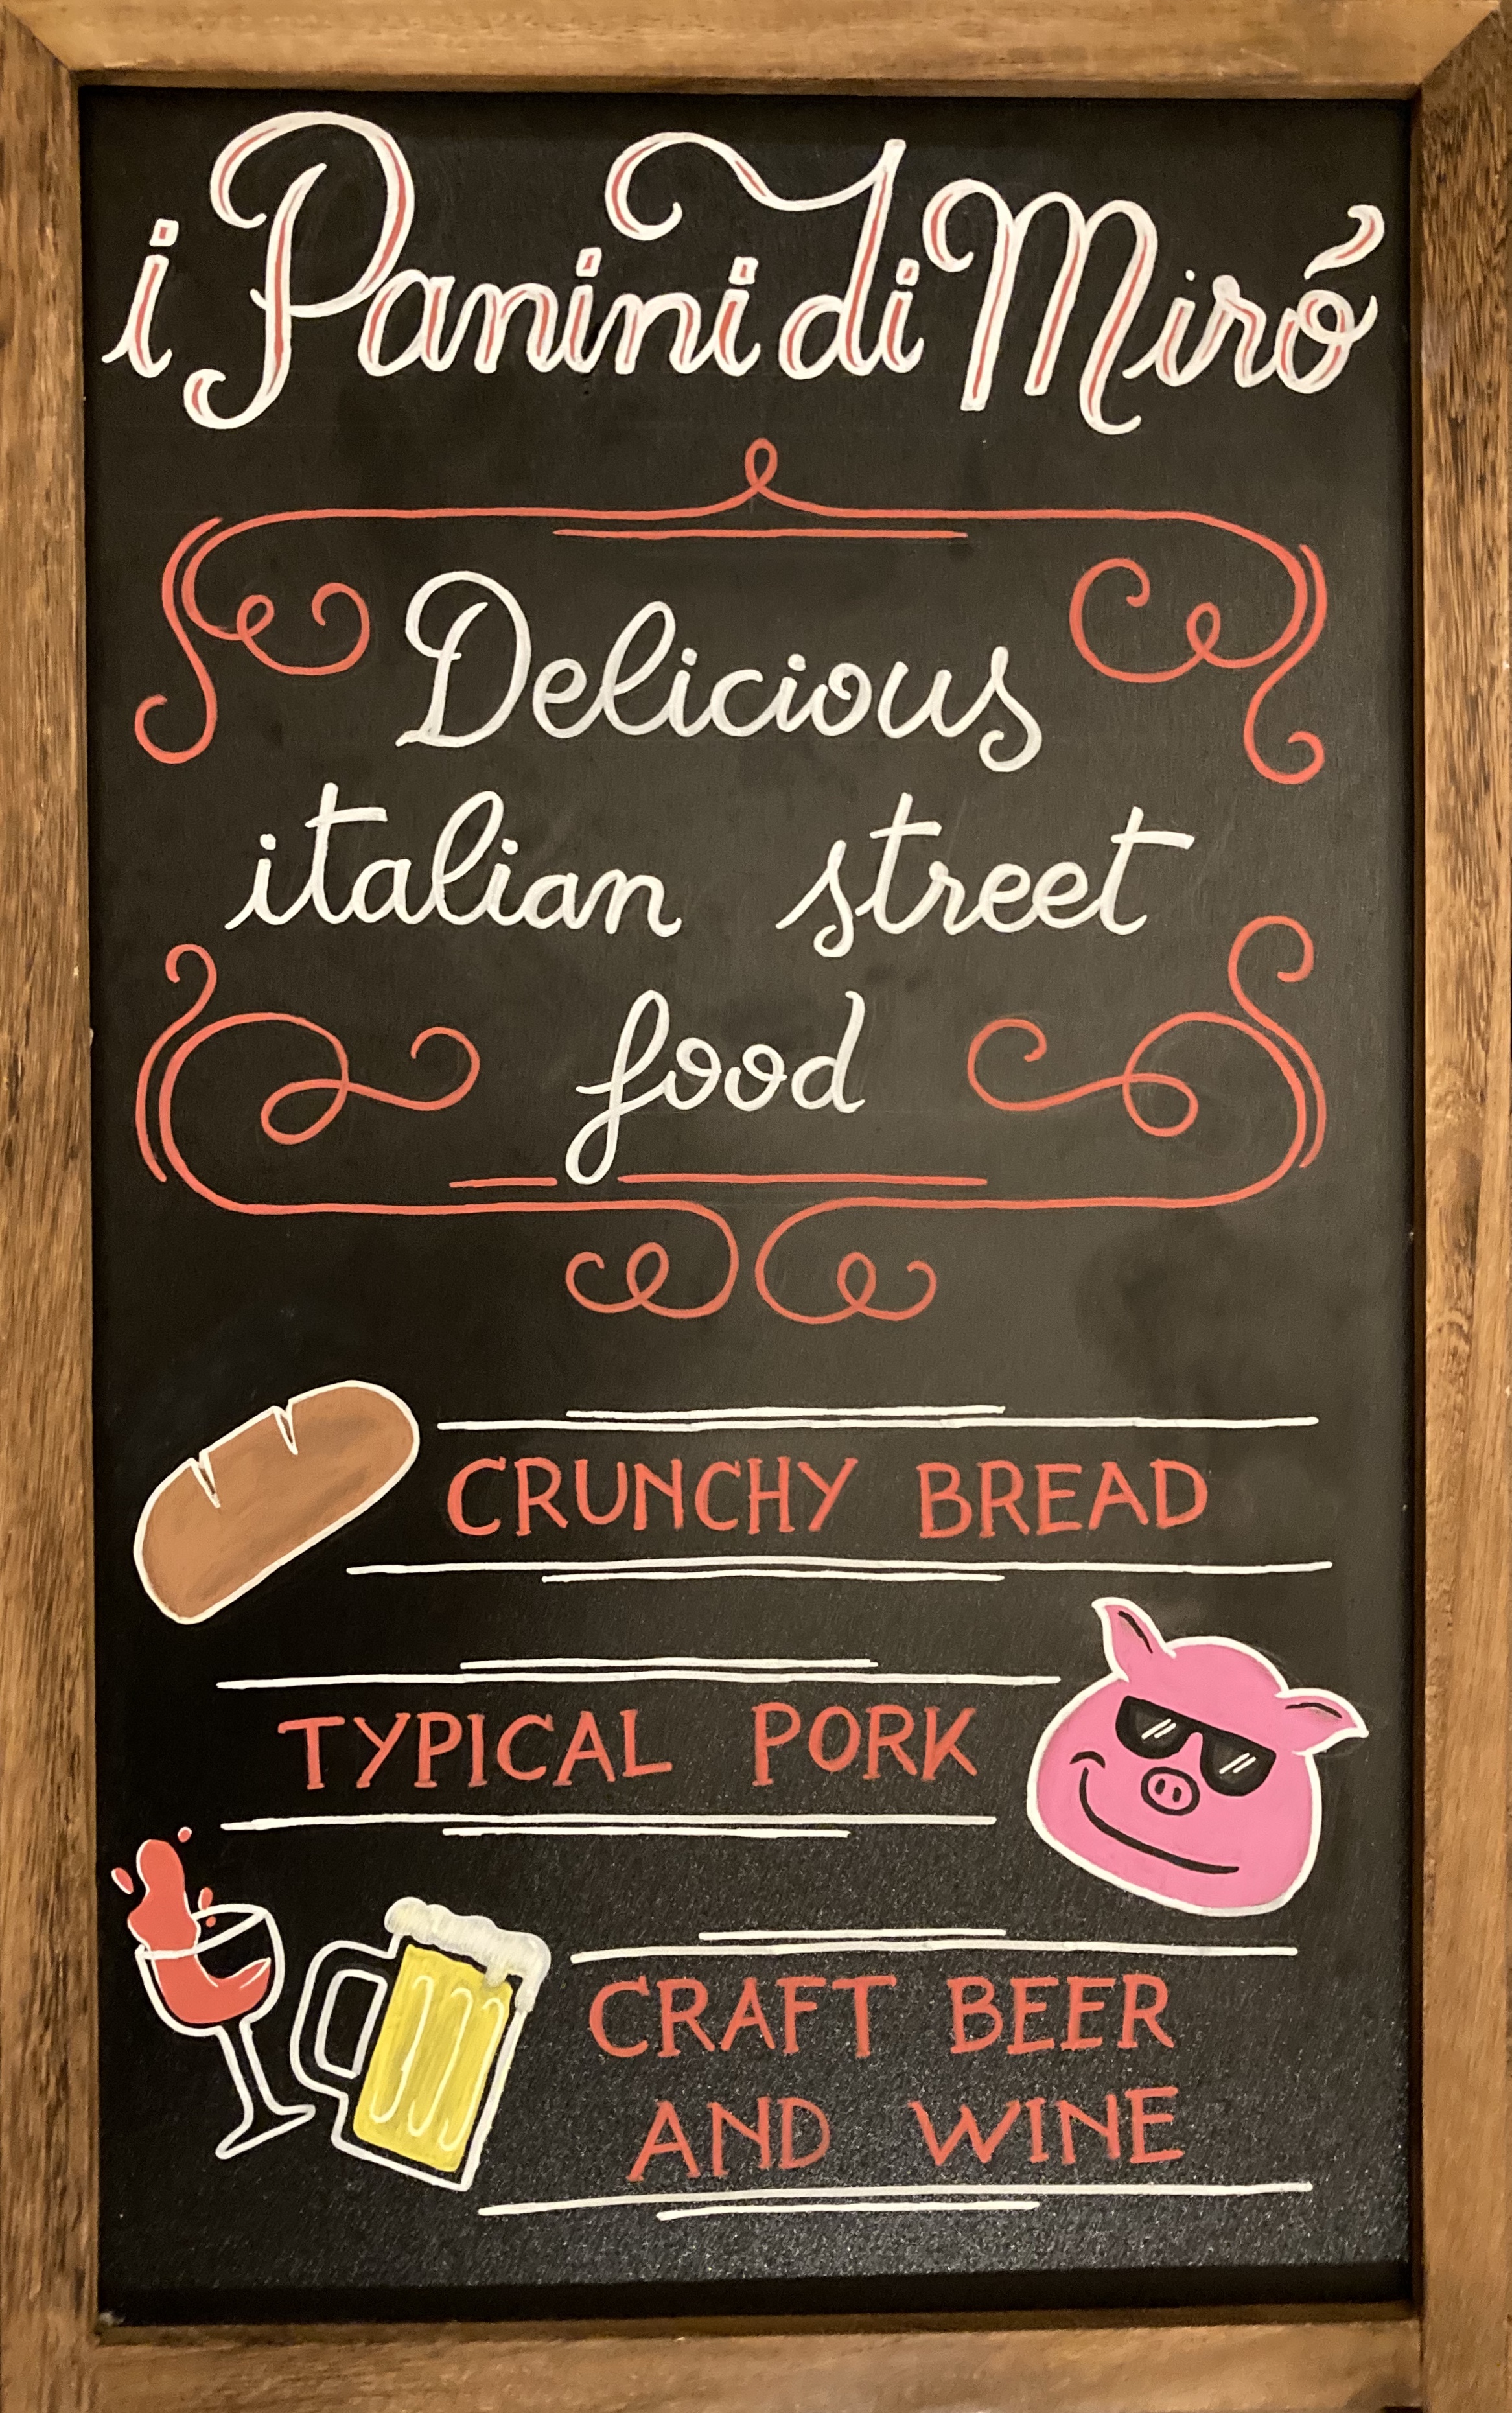 i Panini di Miró
Delicious
italian street
food
CRUNCHY BREAD
TYPICAL PORK
CRAFT BEER
AND WINE